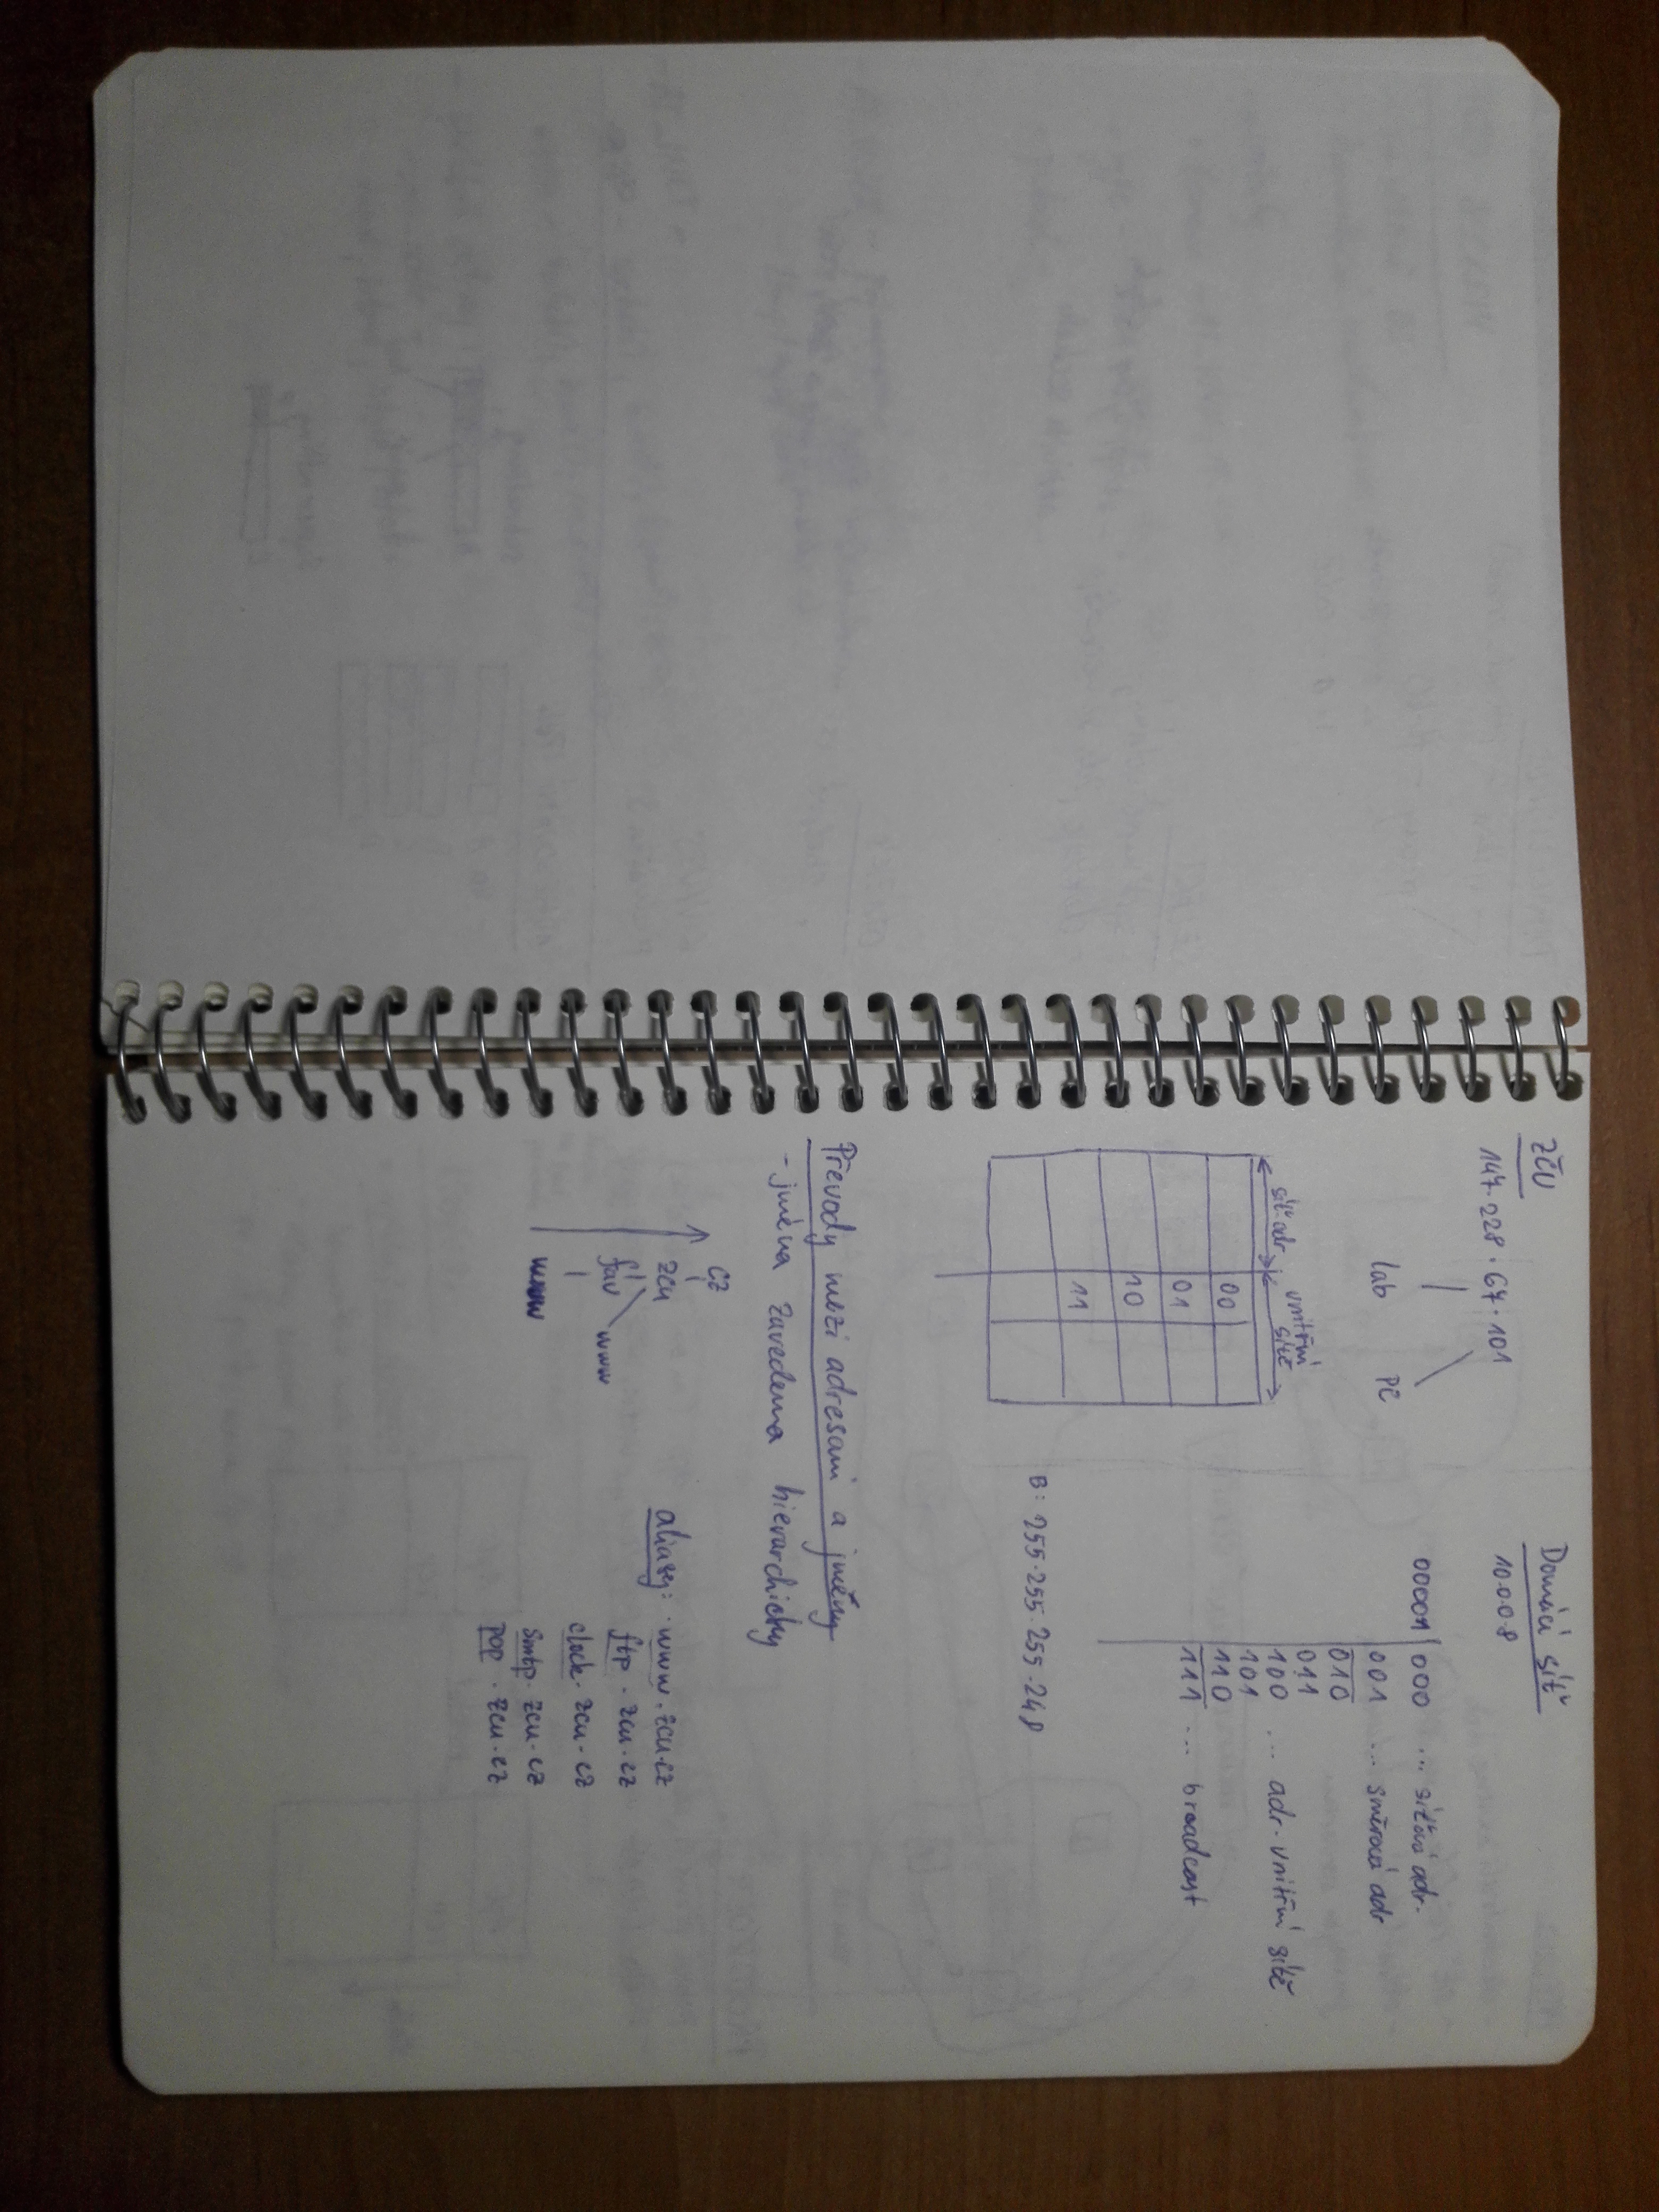 ZČU
147.228.67.101
lab PC
síť. adr. vnitřní sítě
00
01
10
11
Domácí síť
10.0.0.8
00001 000 ... síťová adr.
001 ... směrová adr
010
011
100 ... adr. vnitřní sítě
101
110
111 ... broadcast
B: 255.255.255.248
Převody mezi adresami a jmény
- jména zavedena hierarchicky
cz
zcu
fav www
www
aliasy: www.zcu.cz
ftp.zcu.cz
clock.zcu.cz
smtp.zcu.cz
pop.zcu.cz